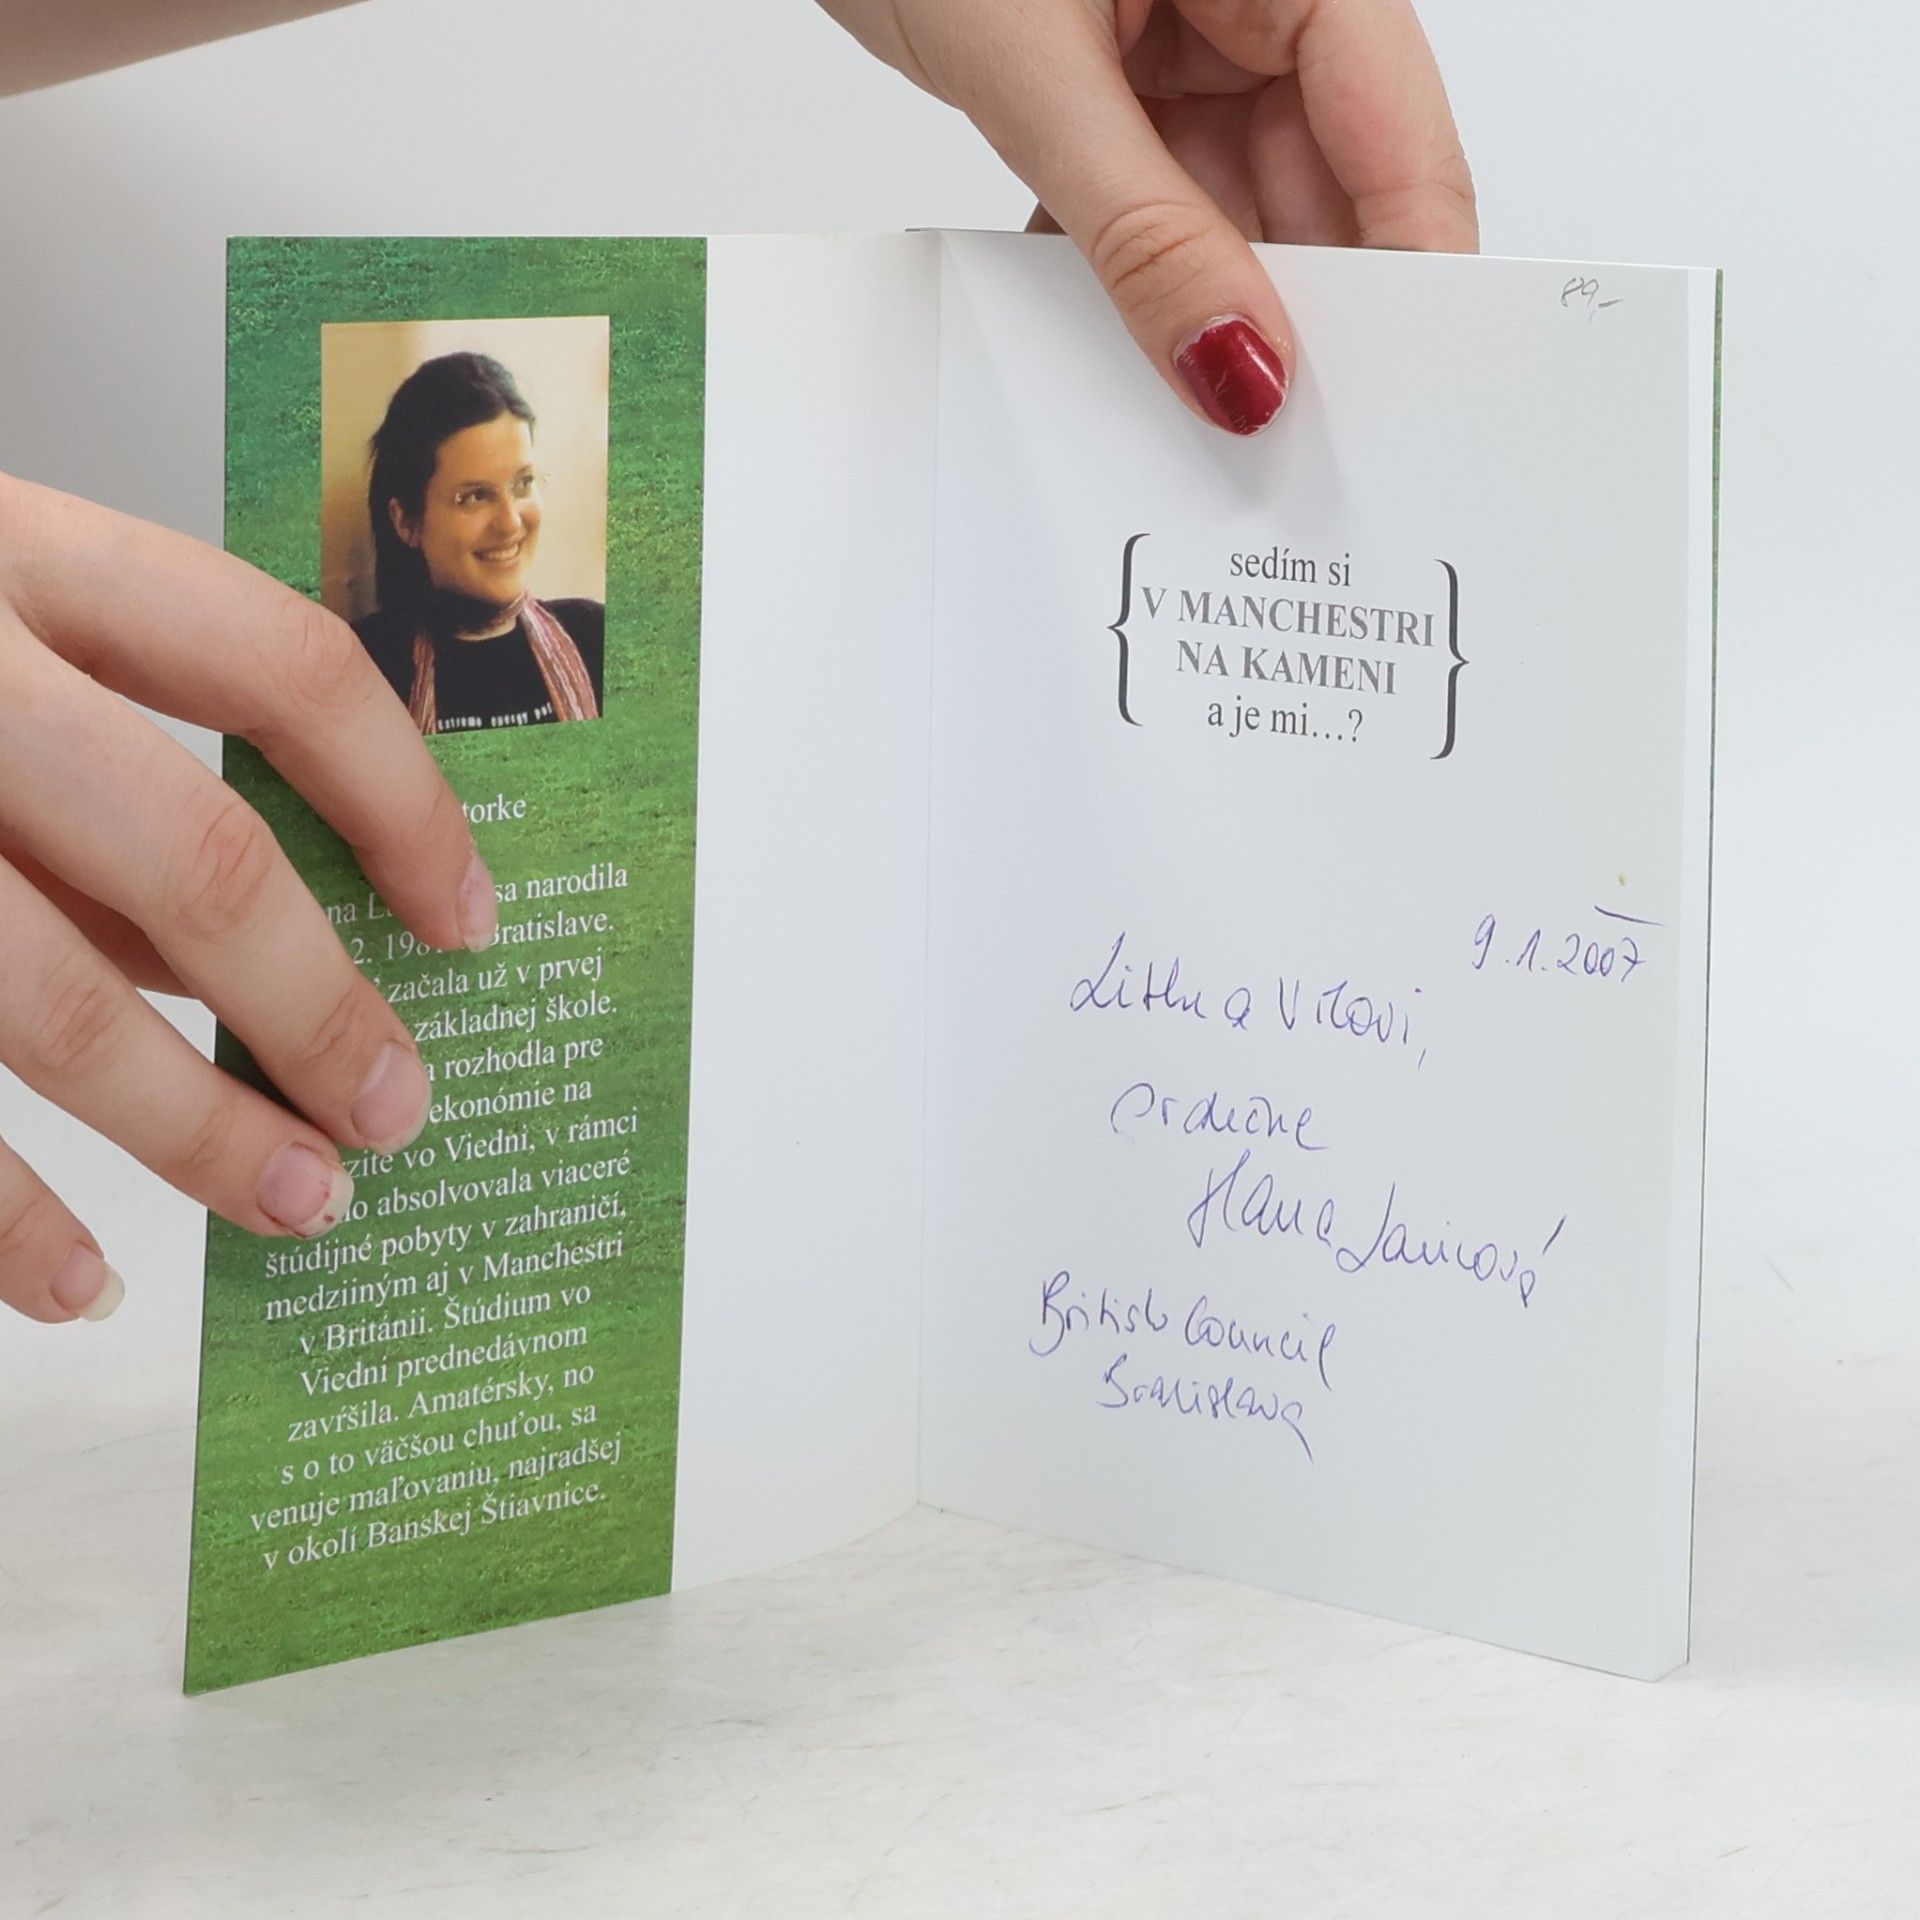 Extreme energy
torke
na sa narodila
2. Bratislave.
začala už v prvej
základnej škole.
a rozhodla pre
ekonómie na
rzite vo Viedni, v rámci
ho absolvovala viaceré
štúdijné pobyty v zahraničí,
medziiným aj v Manchestri
v Británii. Štúdium vo
Viedni prednedávnom
zavŕšila. Amatérsky, no
s o to väčšou chuťou, sa
venuje maľovaniu, najradšej
v okolí Banskej Štiavnice.
89,-
sedím si
V MANCHESTRI
NA KAMENI
a je mi...?
9.1.2007
a
srdečne
Hana
British Council
Bratislava